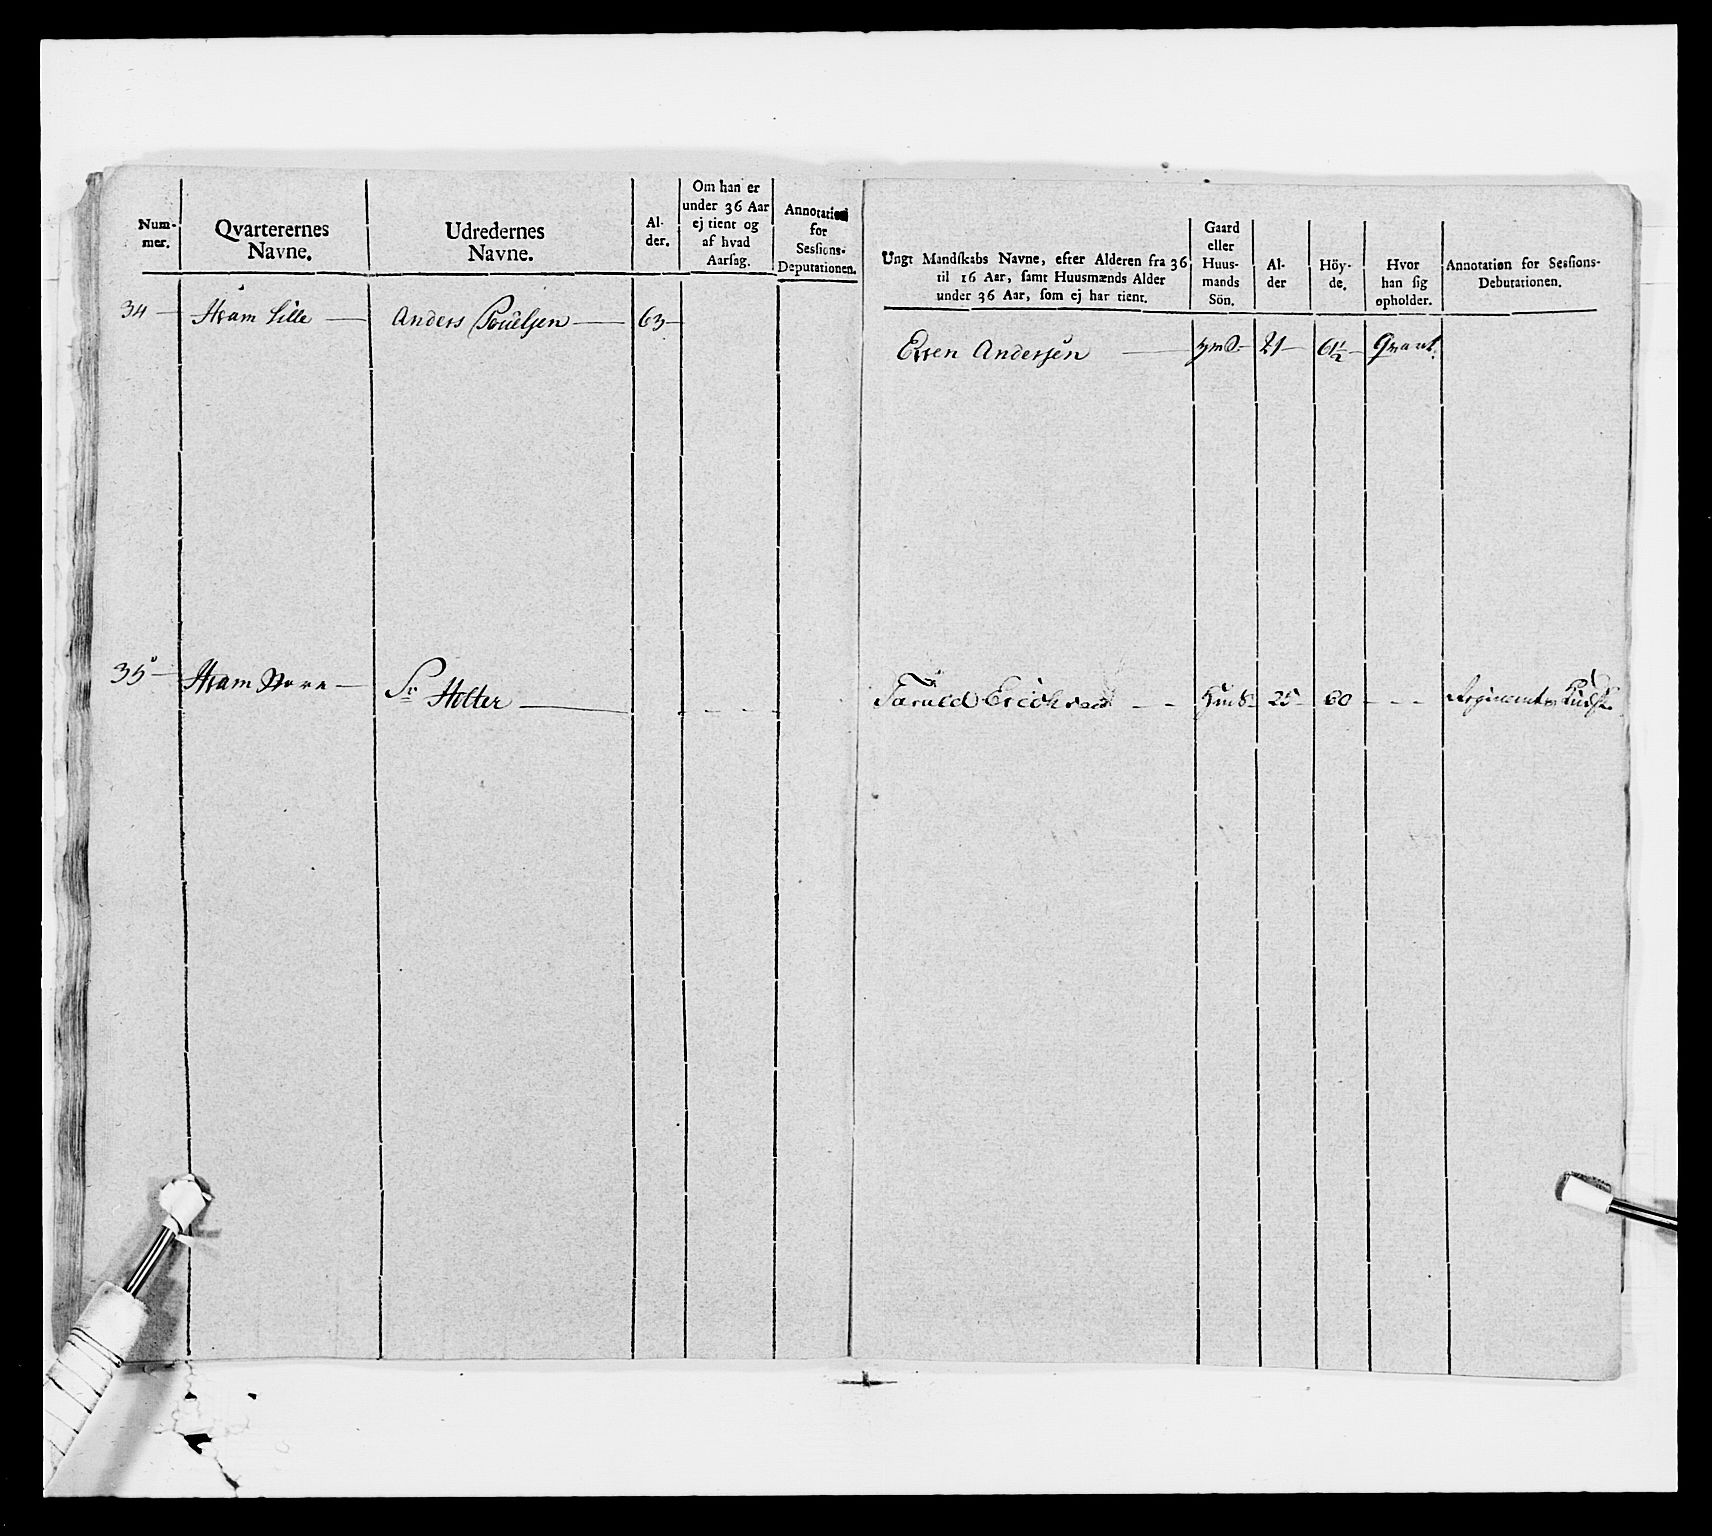 Num-
mer.
Qvarterernes
Navne.
Udredernes
Navne.
Al-
der.
Om han er
under 36 Aar
ej tient og
af hvad
Aarsag.
Annotation
for
Sessions-
Deputationen.
34 — Hvam Lille — Anders Poulsen — 63 —
35 — Hvam Store — Sr Holter —
Ungt Mandskabs Navne, efter Alderen fra 36
til 16 Aar, samt Huusmænds Alder
under 36 Aar, som ej har tient.
Gaard
eller
Huus-
mands
Sön.
Al-
der
Höy-
de.
Hvor
han sig
opholder.
Annotation for Sessions-
Debutationen.
Even Andersen — 21 — 61½ — Qvart.
Taruld — 25 — 60 - - - Regiments